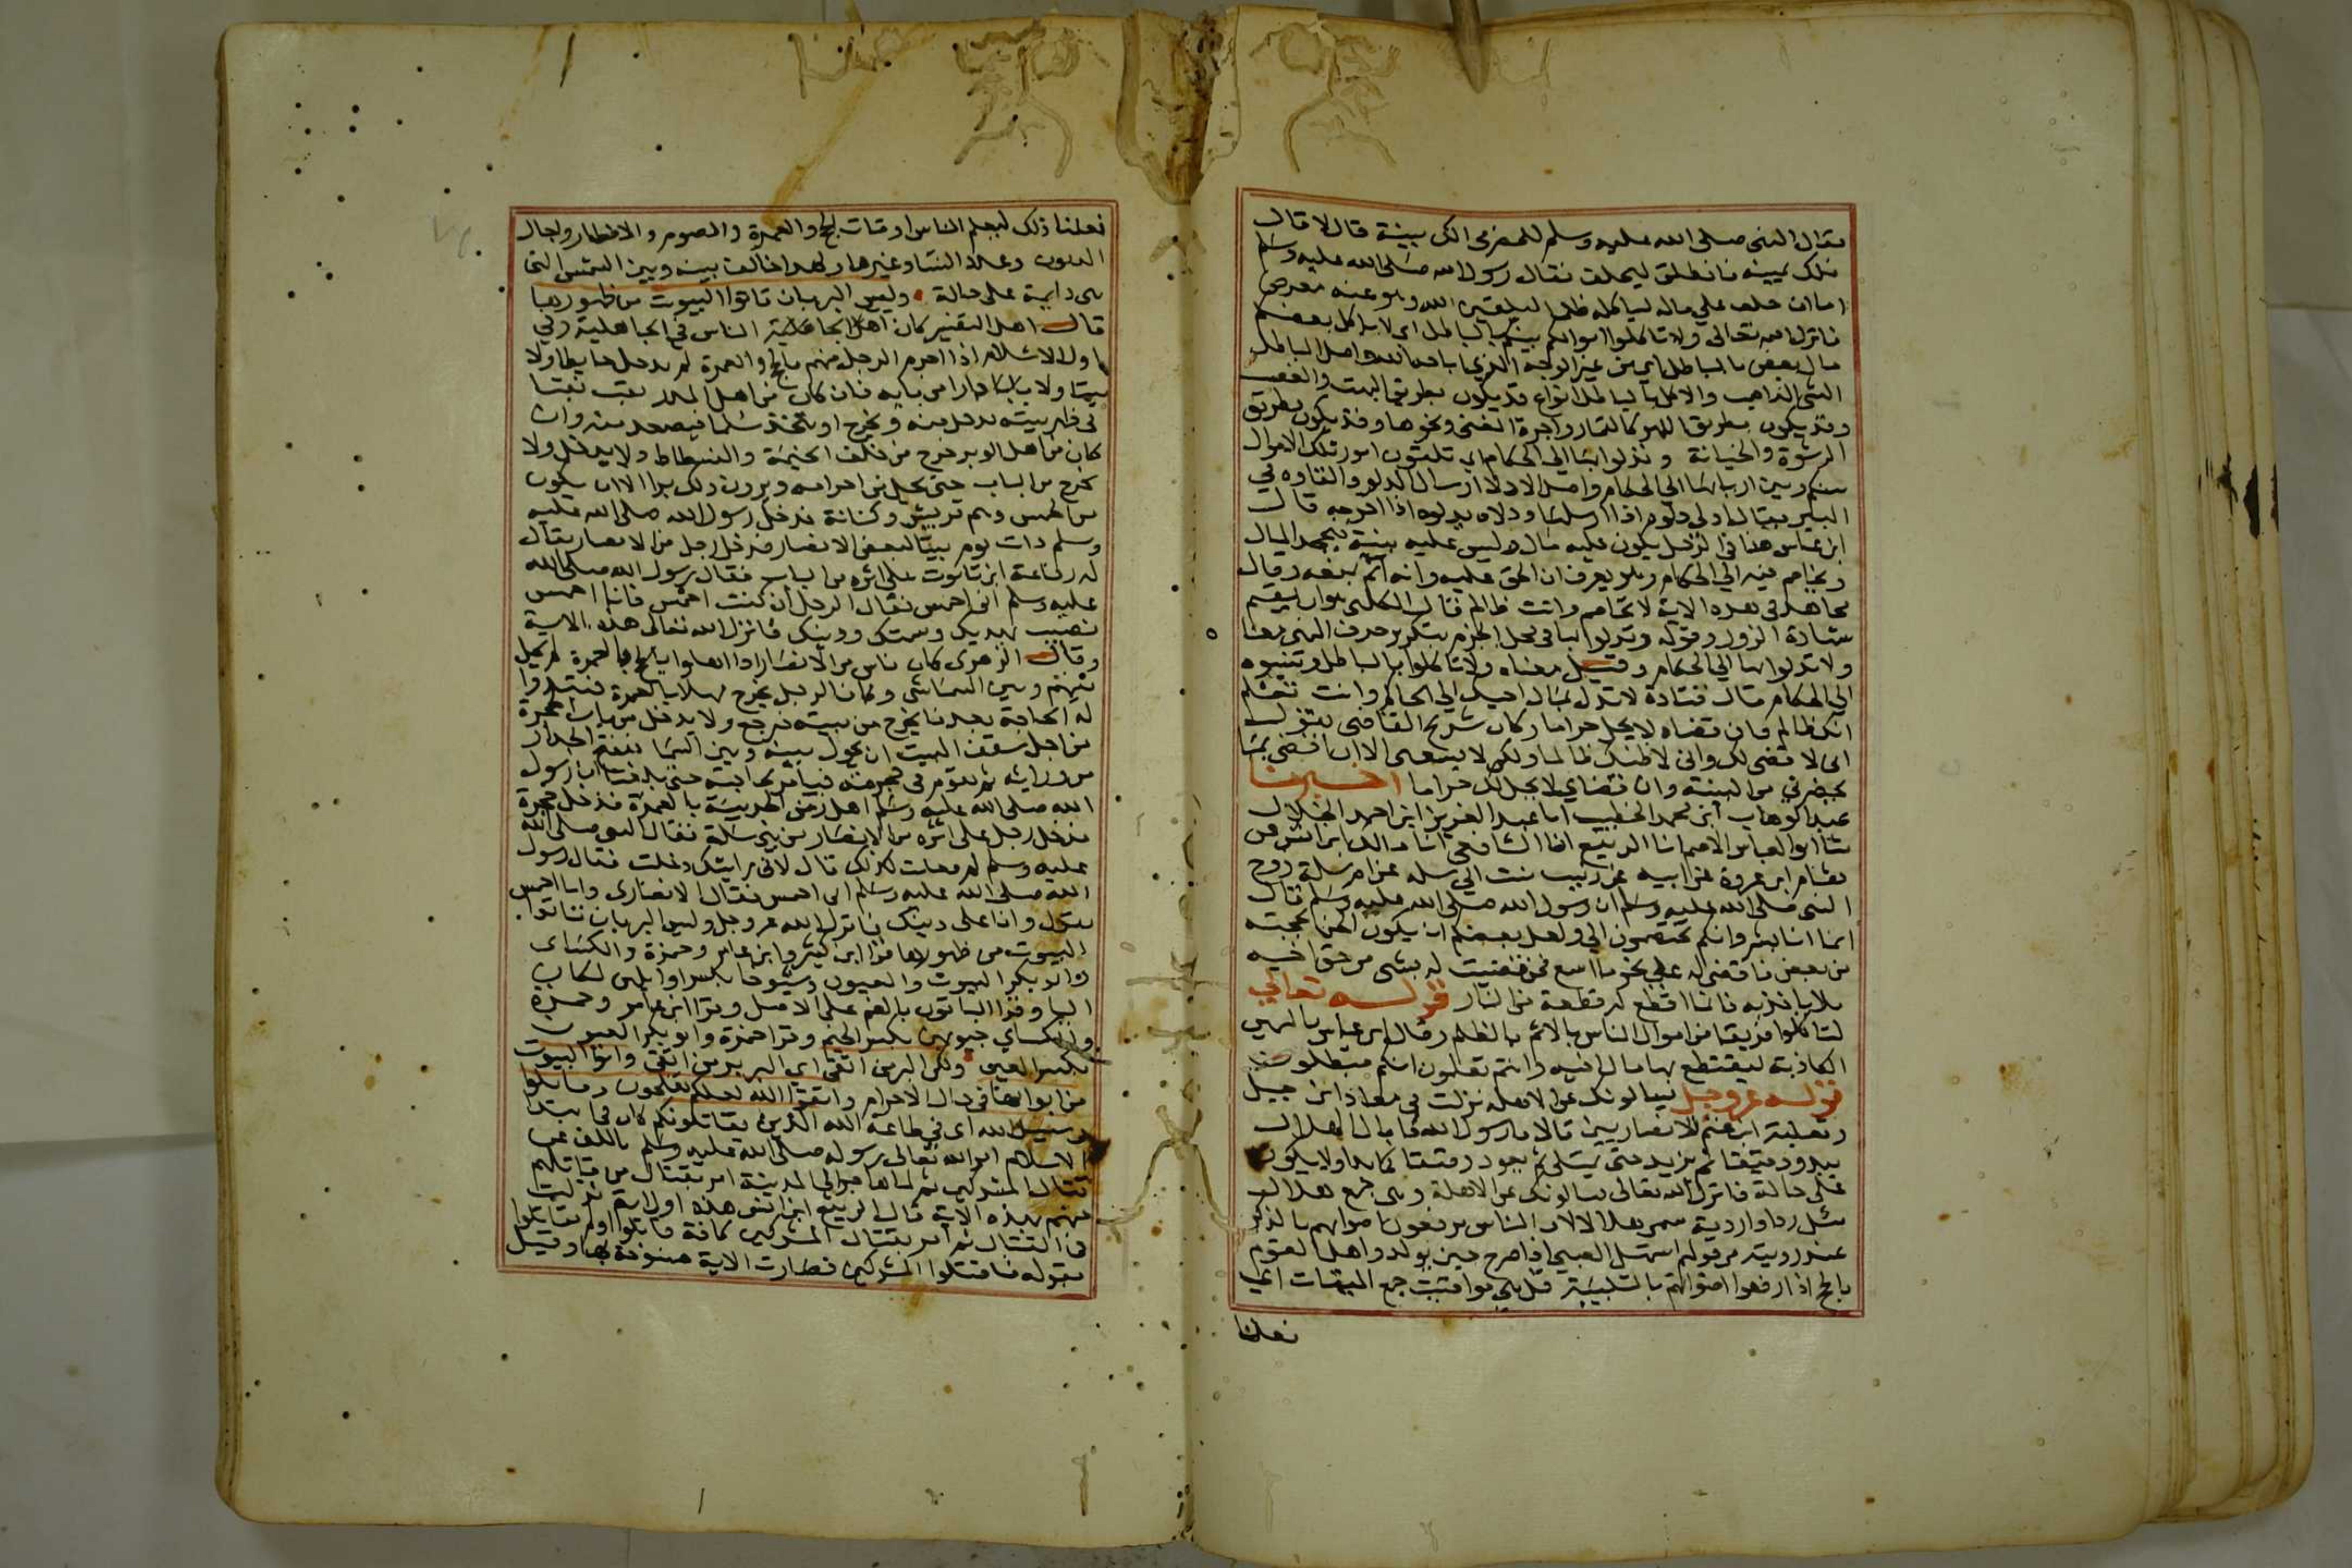 فقال النبي صلى الله عليه وسلم للحضرمي الك بينة قال لا قال
فلك يمينه فانطلق ليحلف فقال رسول الله صلى الله عليه وسلم
اما ان حلف علي ماله لياكله ظلما ليلقين الله وهو عنه معرض
فانزل الله تعالى ولا تاكلوا اموالكم بينكم بالباطل اي لا ياكل بعضكم
مال بعض بالباطل اي من غير الوجه الذي اباحه الله واصل الباطل
الشي الذاهب والاكل بالباطل انواع قد يكون بطريق النهب والغصب
وقد يكون بطريق اللهو كالقمار واجرة المغني ونحوها وقد يكون بطريق
الرشوة والخيانة وتدلوا بها الي الحكام اي تلقون امور تلك الاموال
بينكم وبين اربابها الي الحكام واصل الادلا ارسال الدلو والقاوه في
البير يقال ادلى دلوه اذا ارسلها ودلاه يدلوه اذا اخرجه قال
ابن عباس هذا في الرجل يكون عليه مال وليس عليه بينة فيجحد المال
ويخاصم فيه الي الحكام وهو يعرف ان الحق عليه وانه اثم بمنعه وقال
مجاهد في هذه الاية لا تخاصم وانت ظالم قال الكلبي هو ان يقيم
شهادة الزور وقوله وتدلوا بها في محل الجزم بتكرير حرف النهي معنا
ولا تدلوا بها الي الحكام وقيل معناه ولا تاكلوا بالباطل وتنسبوه
الي الحكام قال قتادة لا تدل بمال اخيك الي الحاكم وانت تعلم
انك ظالم فان قضاه لا يحل حراما وكان شريح القاضي يقول
اني لا قضي لك واني لاظنك ظالما ولكن لا يسعني الا ان اقضي بما
يحضرني من البينة وان قضاي لا يحل لك حراما اخبرنا
عبد الوهاب ابن محمد الخطيب انا عبد العزيز ابن احمد الخلال
ثنا ابو العباس الاصم انا الربيع انا الشافعي انا مالك ابن انس عن
هشام ابن عروة عن ابيه عن زينب بنت ابي سلمه عن ام سلمة زوج
النبي صلى الله عليه وسلم ان رسول الله صلى الله عليه وسلم قال
انما انا بشر وانكم تختصمون الي ولعل بعضكم ان يكون الحن بحجته
من بعض فاقضي له علي نحو ما اسمع فمن قضيت له بشي من حق اخيه
فلا ياخذنه فانما اقطع له قطعة من النار قوله تعالي
لتاكلوا فريقا من اموال الناس بالاثم بالظلم وقال ابن عباس باليمين
الكاذبة ليقتطع بها مال اخيه وانتم تعلمون انكم مبطلون
قوله عز وجل يسالونك عن الاهلة نزلت في معاذ ابن جبل
وثعلبة ابن غنم الانصاريين قالا يا رسول الله ما بال الهلال
يبدو دقيقا ثم يزيد حتى يمتلي ثم يعود دقيقا كما بدا ولا يكون
على حالة فانزل الله تعالى يسالونك عن الاهلة وهي جمع هلال
مثل ردا واردية سمي هلالا لان الناس يرفعون اصواتهم بالذكر
عند رويته من قولهم استهل الصبي اذا صرح حين يولد واهل القوم
بالحج اذا رفعوا اصواتهم بالتلبية قل هي مواقيت جمع الميقات اي
فعلنا
فعلنا ذلك ليعلم الناس اوقات الحج والعمرة والصوم والافطار واجال
الديون وعدد النسا وغيرها ولهذا خالف بينه وبين الشمس التي
هي دايمة على حالة وليس البر بان تاتوا البيوت من ظهورها
قال اهل التفسير كان اهل الجاهلية الناس في الجاهلية وفي
اول الاسلام اذا احرم الرجل منهم بالحج والعمرة لم يدخل حايطا ولا
بيتا ولا دارا من بابه فان كان من اهل المدر نقب نقبا
في ظهر بيته يدخل منه ويخرج او يتخذ سلما فيصعد منه وان
كان من اهل الوبر خرج من خلف الخيمة والفسطاط ولا يدخل ولا
يخرج من الباب حتى يحل من احرامه ويرون ذلك برا الا ان يكون
من الحمس وهم قريش وكنانة فدخل رسول الله صلى الله عليه
وسلم ذات يوم بيتا لبعض الانصار فدخل رجل من الانصار يقال
له رفاعة ابن تابوت على اثره من الباب فقال رسول الله صلى الله
عليه وسلم اني احمس فقال الرجل ان كنت احمس فانا احمس
رضيت بهديك وسمتك ودينك فانزل الله تعالى هذه الاية
وقال الزهري كان ناس من الانصار اذا اهلوا بالحج بالعمرة لم يحل
بينهم وبين السما شي وكان الرجل يخرج مهلا بالعمرة فتبدوا
له الحاجة بعد ما يخرج من بيته فيرجع ولا يدخل من باب الحجرة
من اجل سقف البيت ان يحول بينه وبين السما فيفتح الجدار
من ورايه ثم يقوم في حجرته فيامر بحاجته حتى بلغنا ان رسول
الله صلى الله عليه وسلم اهل زمن الحديبية بالعمرة فدخل حجرة
فدخل رجل على اثره من الانصار من بني سلمة فقال النبي صلى الله
عليه وسلم لم فعلت كذلك قال لاني رايتك دخلت فقال رسول
الله صلى الله عليه وسلم اني احمس فقال الانصاري وانا احمس
يقول وانا على دينك فانزل الله عز وجل وليس البر بان تاتوا
البيوت من ظهورها قرا ابن كثير وابن عامر وحمزة والكساي
وابو بكر البيوت والعيون وشيوخا بكسر اوايلهن لمكان
اليا وقرا الباقون بالضم على الاصل وقرا ابن عامر وحمزة
والكساي جيوبهن بكسر الجيم وقرا حمزة وابو بكر الغيوب
بكسر الغين ولكن البر من اتقى اي البر بر من اتقى واتوا البيوت
من ابوابها في حال الاحرام واتقوا الله لعلكم تفلحون وقاتلوا
في سبيل الله اي في طاعة الله الذين يقاتلونكم كان في ابتدا
الاسلام امر الله تعالى رسوله صلى الله عليه وسلم بالكف عن
قتال المشركين ثم لما هاجر الي المدينة امر بقتال من قاتله
منهم بهذه الاية قال الربيع ابن انس هذه اول اية نزلت
في القتال ثم امر بقتال المشركين كافة قاتلوا او لم يقاتلوا
بقوله فاقتلوا المشركين فصارت الاية منسوخة بها وقيل